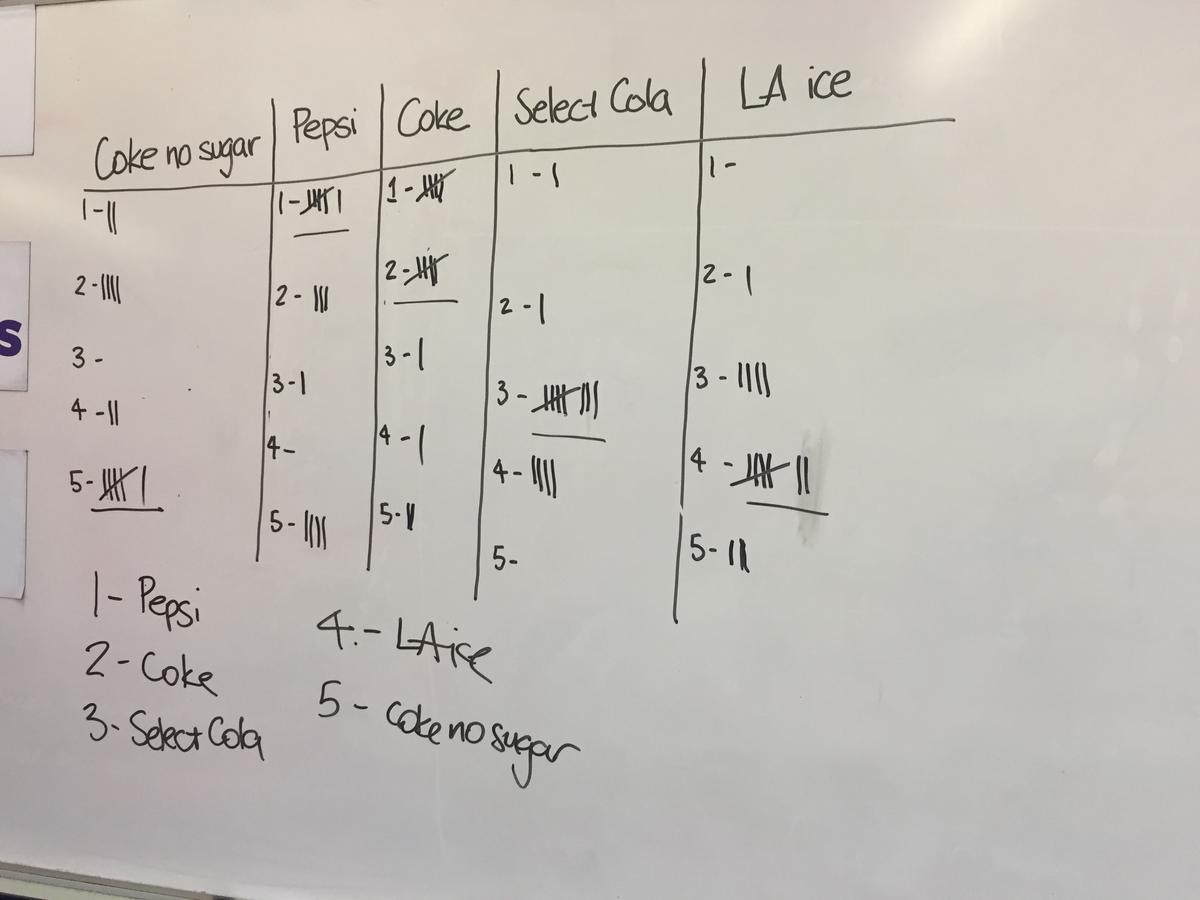 Coke no sugar Pepsi Coke Select Cola LA ice
1 - || 1 - 卌 | 1 - 卌 1 - | 1 -
2 - |||| 2 - ||| 2 - 卌 2 - | 2 - |
3 - 3 - | 3 - | 3 - 卌 ||| 3 - ||||
4 - || 4 - 4 - | 4 - |||| 4 - 卌 ||
5 - 卌 | 5 - |||| 5 - || 5 - 5 - ||
1 - Pepsi
2 - Coke
3 - Select Cola
4. - LA ice
5 - Coke no sugar
S